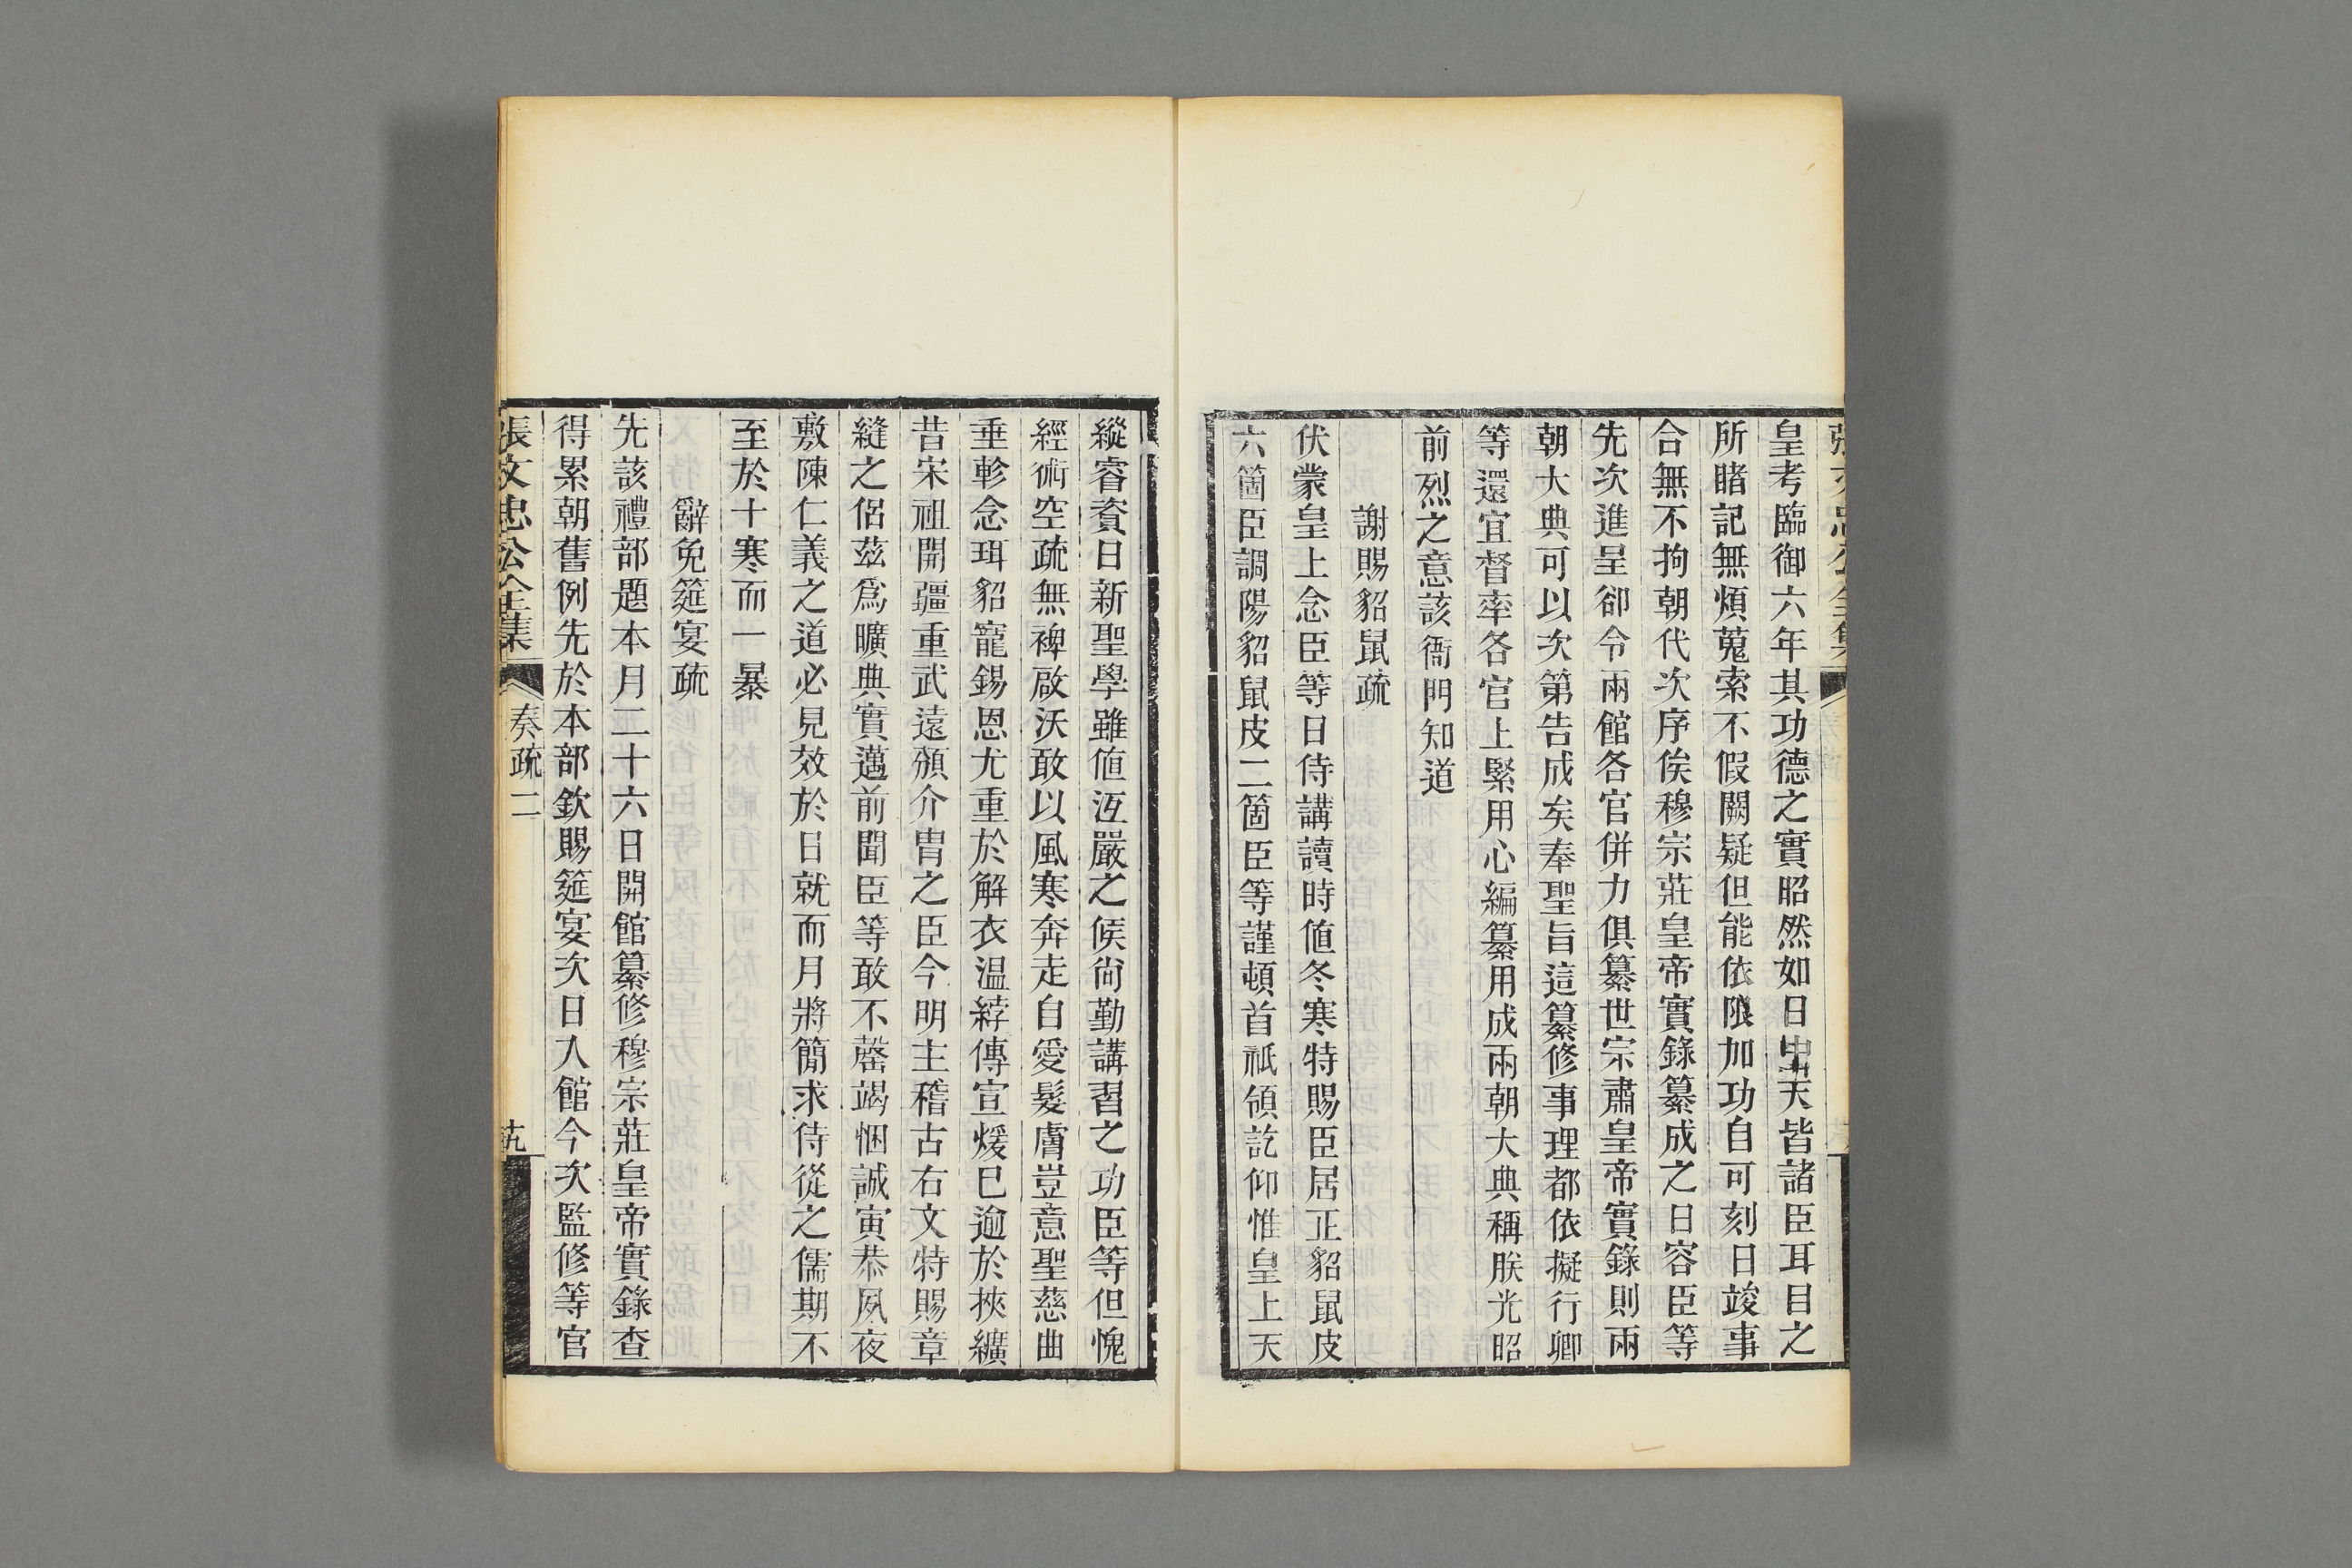 皇考臨御六年其功德之實昭然如日中天皆諸臣耳目之
所睹記無煩蒐索不假闕疑但能依限加功自可刻日竣事
合無不拘朝代次序俟穆宗莊皇帝實錄纂成之日容臣等
先次進呈卻令兩館各官併力俱纂世宗肅皇帝實錄則兩
朝大典可以次第告成矣奉聖旨這纂修事理都依擬行卿
等還宜督率各官上緊用心編纂用成兩朝大典稱朕光昭
前烈之意該衙門知道
謝賜貂鼠疏
伏蒙皇上念臣等日侍講讀時值冬寒特賜臣居正貂鼠皮
六箇臣調陽貂鼠皮二箇臣等謹頓首祇領訖仰惟皇上天
縱睿資日新聖學雖値沍嚴之候尙勤講習之功臣等但愧
經術空疏無裨啟沃敢以風寒奔走自愛髮膚豈意聖慈曲
垂軫念珥貂寵錫恩尤重於解衣温綍傳宣煖已逾於挾纊
昔宋祖開疆重武遠頒介冑之臣今明主稽古右文特賜章
縫之侶茲爲曠典實邁前聞臣等敢不罄竭悃誠寅恭夙夜
敷陳仁義之道必見效於日就而月將簡求侍從之儒期不
至於十寒而一暴
辭免筵宴疏
先該禮部題本月二十六日開館纂修穆宗莊皇帝實錄查
得累朝舊例先於本部欽賜筵宴次日入館今次監修等官
張文忠公全集
奏疏二